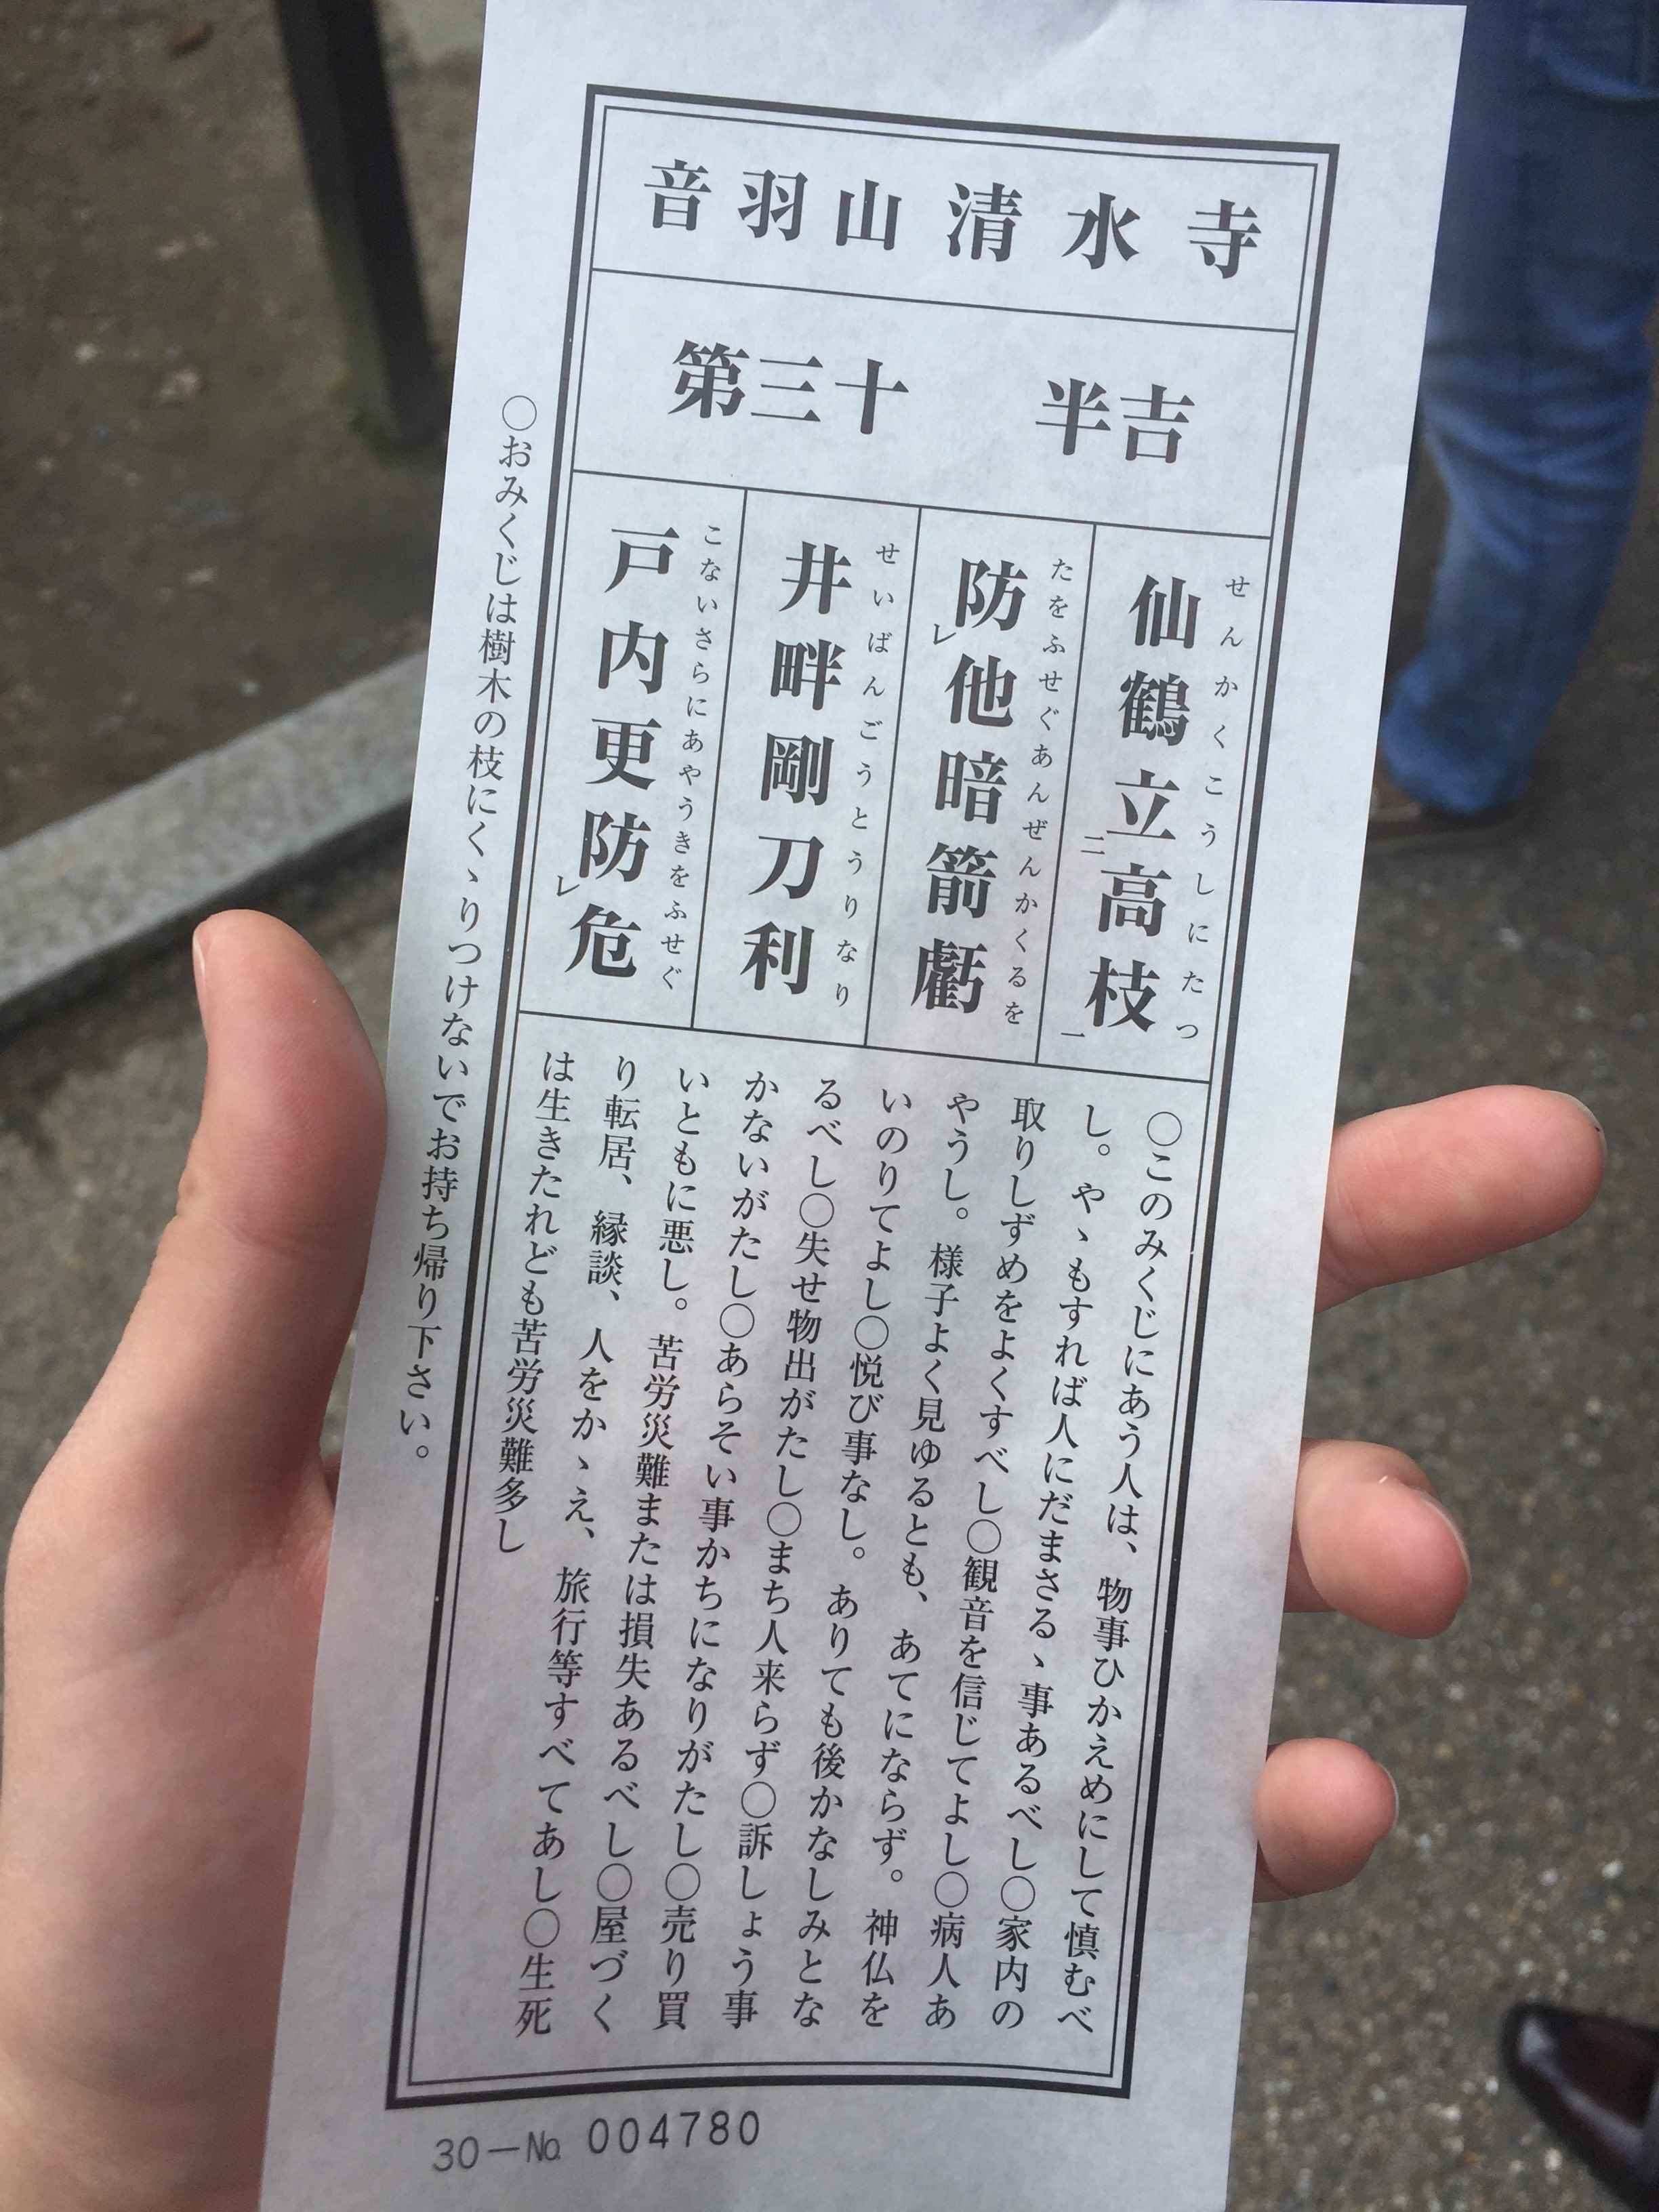 音羽山 清水寺
第三十 半吉
せんかくこうしにたつ
仙鶴立二高枝一
たをふせぐあんぜんかくるを
防レ他暗箭虧
せいばんごうとうりなり
井畔剛刀利
こないさらにあやうきをふせぐ
戸内更防レ危
〇このみくじにあう人は、物事ひかえめにして慎むべ
し。やゝもすれば人にだまさるゝ事あるべし〇家内の
取りしずめをよくすべし〇観音を信じてよし〇病人あ
やうし。様子よく見ゆるとも、あてにならず。神仏を
いのりてよし〇悦び事なし。ありても後かなしみとな
るべし〇失せ物出がたし〇まち人来らず〇訴しょう事
かないがたし〇あらそい事かちになりがたし〇売り買
いともに悪し。苦労災難または損失あるべし〇屋づく
り転居、縁談、人をかゝえ、旅行等すべてあし〇生死
は生きたれども苦労災難多し
〇おみくじは樹木の枝にくゝりつけないでお持ち帰り下さい。
30－№ 004780